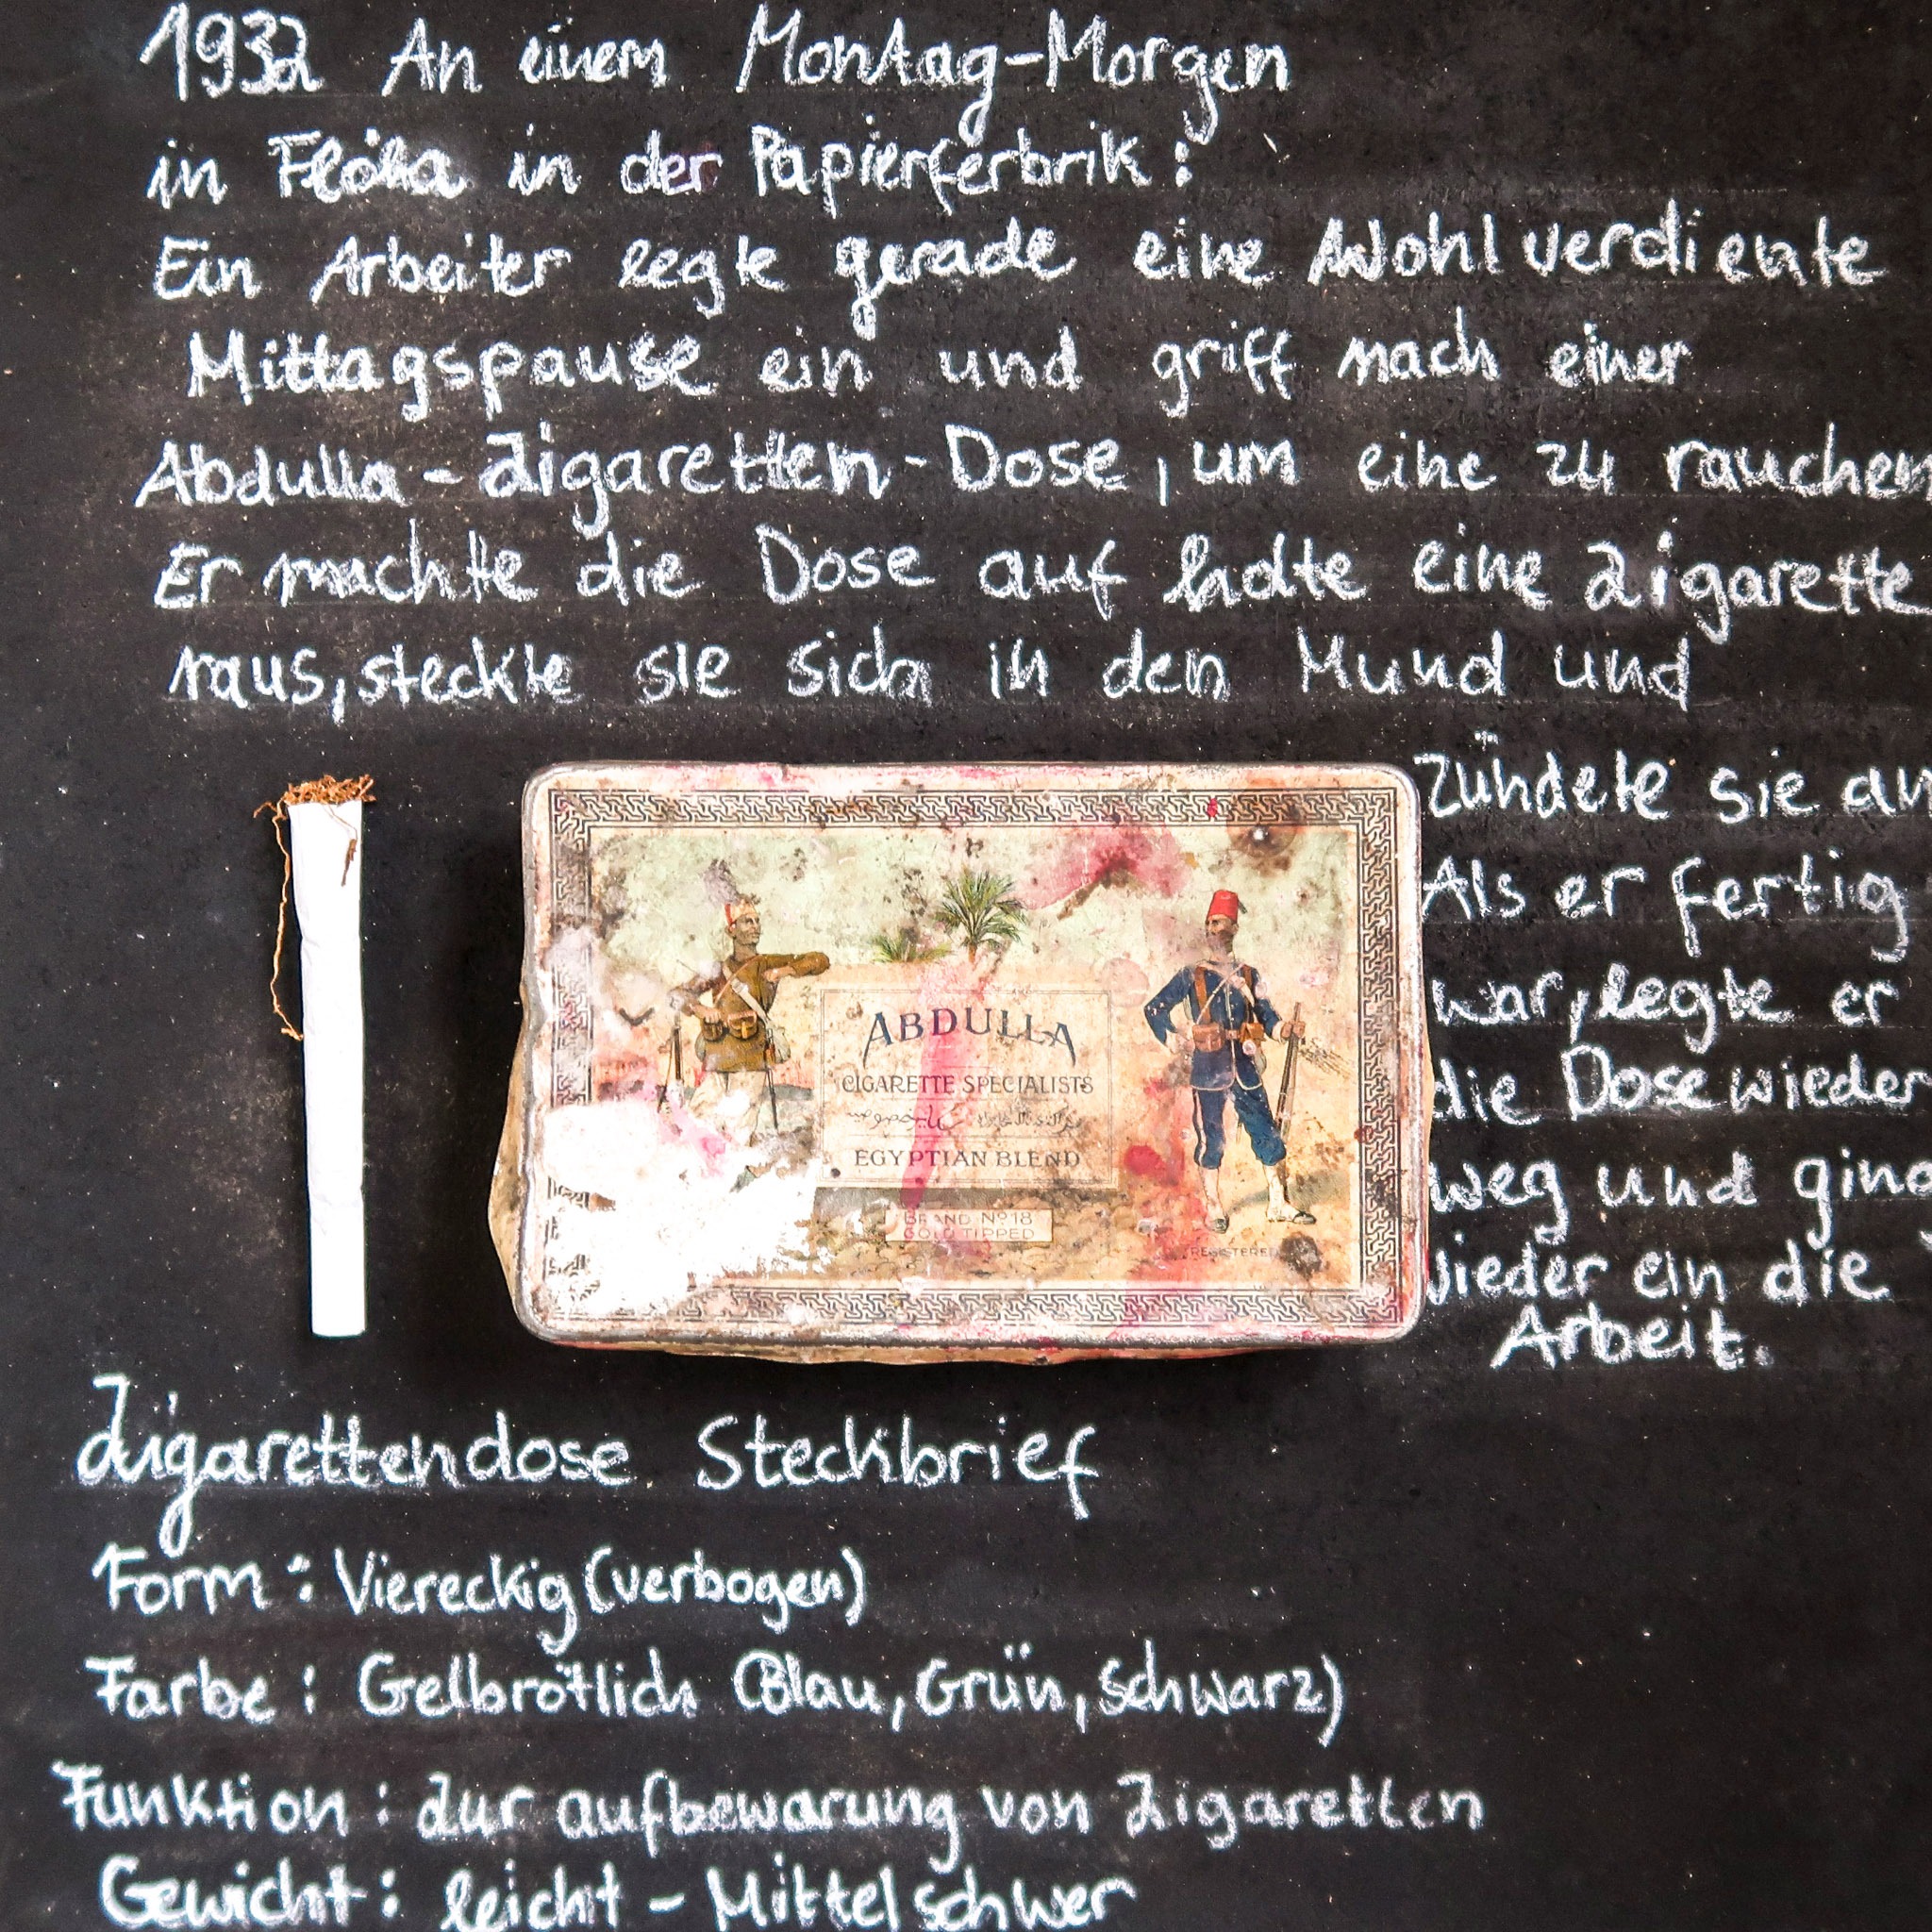 1932 An einem Montag-Morgen
in Flöha in der Papierferbrik:
Ein Arbeiter legte gerade eine Wohlverdiente
Mittagspause ein und griff nach einer
Abdulla-Zigaretten-Dose, um eine zu rauchen
Er machte die Dose auf holte eine Zigarette
raus, steckte sie sich in den Mund und
zündete sie an
Als er fertig
war, legte er
die Dose wieder
weg und ging
wieder ein die
Arbeit.
ABDULLA
CIGARETTE SPECIALISTS
EGYPTIAN BLEND
BRAND Nº 18
GOLD TIPPED
REGISTERED
Zigarettendose Steckbrief
Form: Viereckig (verbogen)
Farbe: Gelbrötlich (Blau, Grün, Schwarz)
Funktion: Zur aufbewarung von Zigaretten
Gewicht: leicht - Mittelschwer